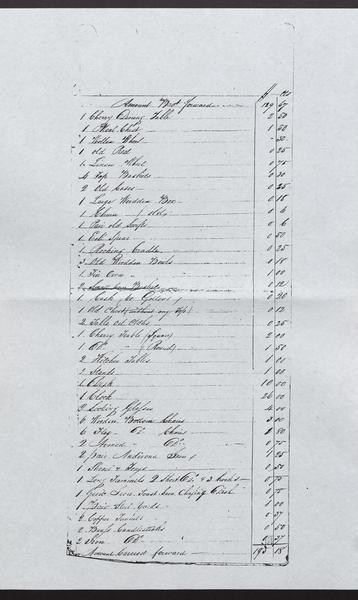 $ Cts
Amount Brot forward 129 67
1 Cherry Dining Table 2 50
1 Meal Chest 1 50
1 Woollen Wheel 0 50
1 old Reel 0 25
1 Linen Wheel 0 75
4 Baskets 0 30
2 Old Cases 0 25
1 Large Wooden Box 0 18
1 Churn (old) 0 6
1 Pair old 0 6
1 Eel Spear 0 50
1 Rocking Cradle 0 25
3 Old Wooden Bowls 0 18
1 Tin Oven 1 00
2 Baskets 0 12
1 Cask, 60 Gallons 0 20
1 Old Chest (without any top) 0 12
2 Table Oil Cloths 0 25
1 Cherry Table (Square) 2 00
1 Do " (Round) 1 50
2 Kitchen Tables 1 00
2 Stands 1 00
1 Desk 10 00
1 Clock 26 00
2 Looking Glasses 4 00
6 Wooden Bottom Chairs 3 00
6 Flag Do Chairs 3 50
2 Do 0 75
2 pair Andirons Iron 1 25
1 Shovel & Tongs 0 50
1 Long Trammel 2 Short Do & 3 hooks 0 75
1 Iron Toast Iron Chafing Dish 0 75
1 pair Cards 1 00
2 Copper 0 37
2 Brass Candlesticks 0 50
2 Iron Do 0 37
Amount Carried forward 195 18